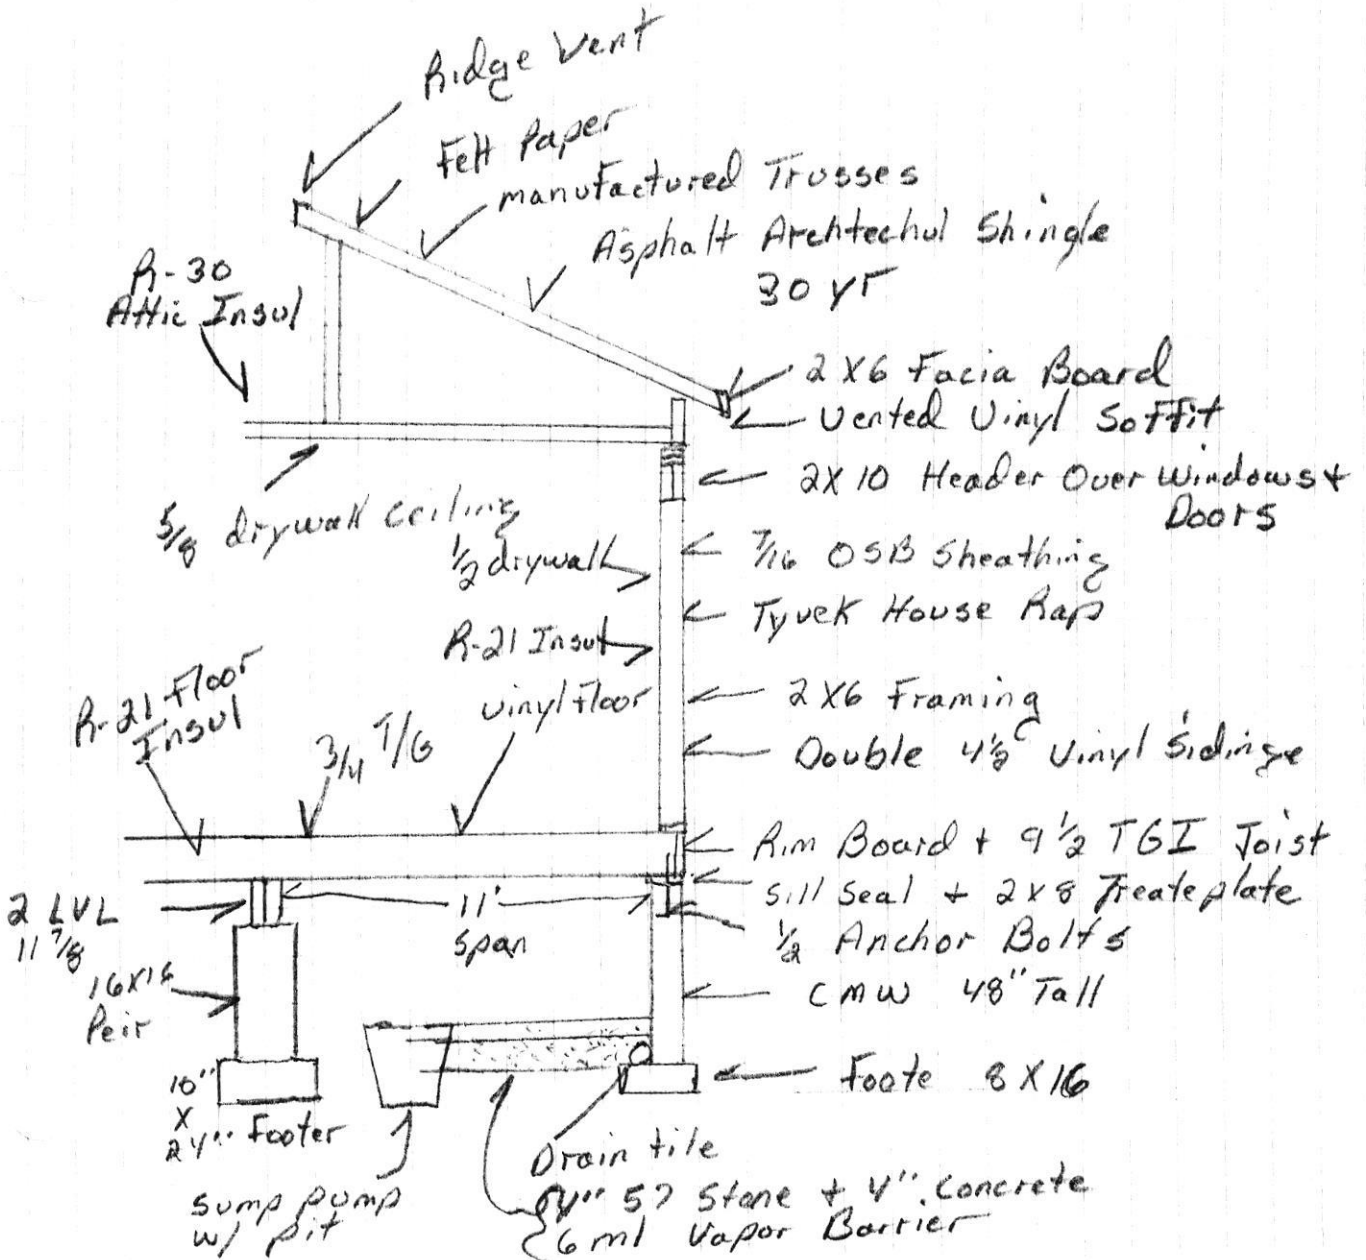 Ridge Vent
Felt Paper
manufactured Trusses
Asphalt Archtechul Shingle
30 yr
R-30
Attic Insul
2 X6 Facia Board
Vented Vinyl Soffit
2X10 Header Over Windows +
Doors
5/8 drywall ceiling
1/2 drywall
7/16 OSB Sheathing
Tyvek House Rap
R-21 Insul
R-21 Floor
Insul
3/4 T/G
vinyl floor
2 X6 Framing
Double 4 1/2 C Vinyl Sidinge
Rim Board + 9 1/2 TGI Joist
Sill Seal + 2 x 8 Treateplate
1/2 Anchor Bolts
2 LVL
11 7/8
11'
span
16X16
Peir
CMW 48" Tall
Foote 8 X 16
10"
X
24" Footer
sump pump
w/ pit
Drain tile
4" 57 Stone + 4" Concrete
6 ml Vapor Barrier